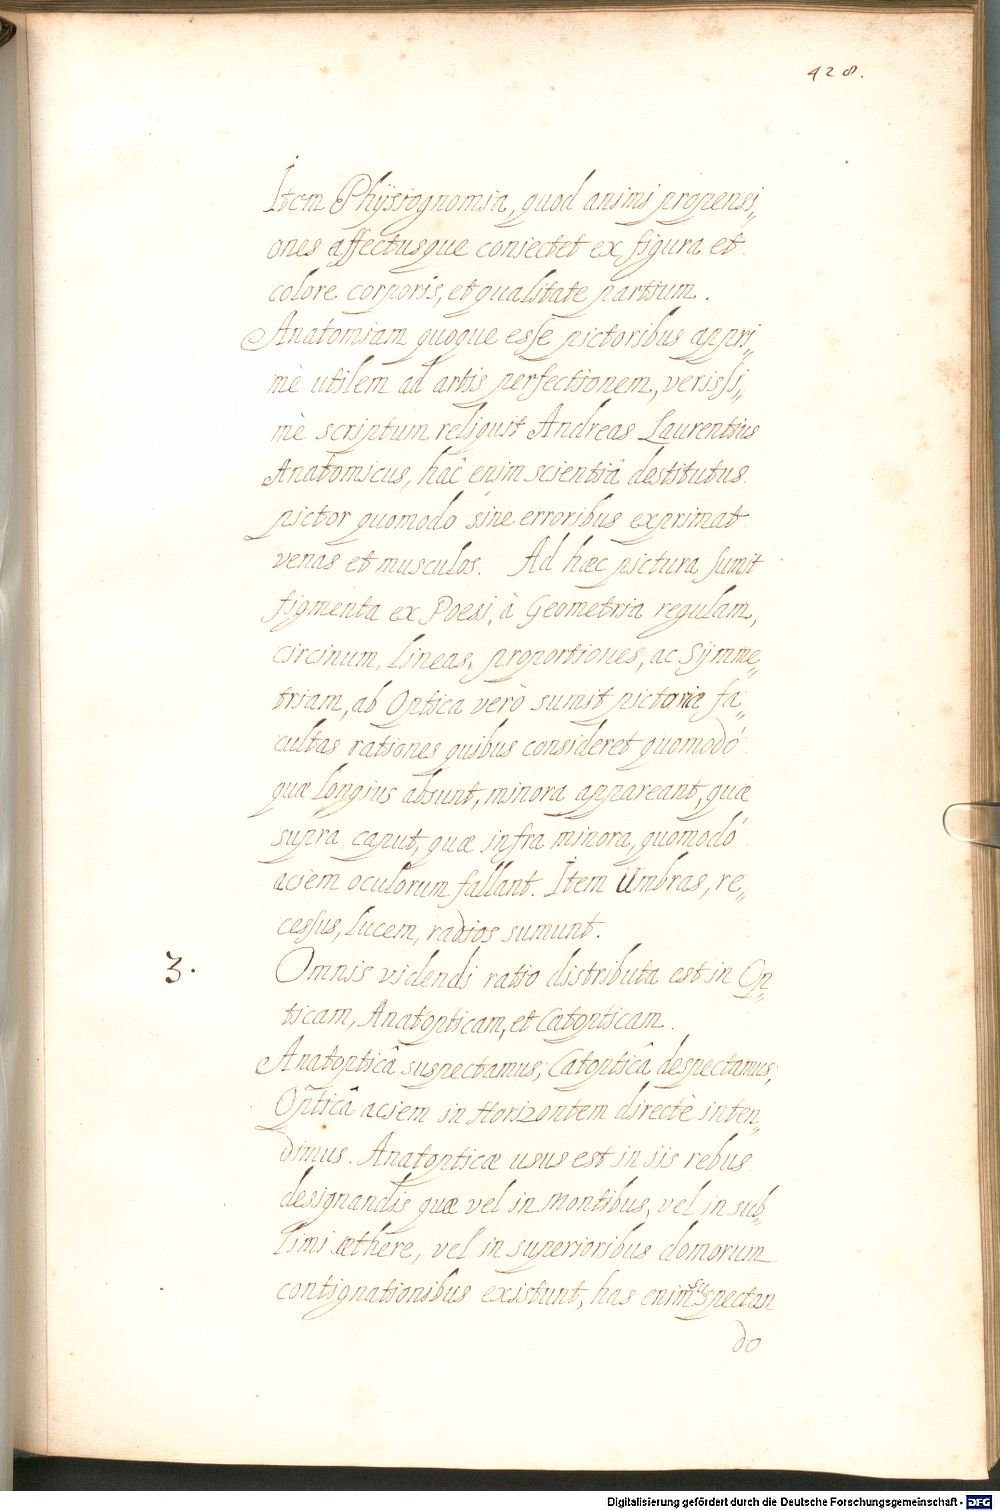 428.
Item Physiognomia, quod animi propensi„
ones affectusque coniectet ex figura et
colore corporis, et qualitate partium.
Anatomiam quoque esse pictoribus appri„
mè utilem ad artis perfectionem, verissi„
mè scriptum reliquit Andreas Laurentius
Anatomicus, hac̑ enim scientiâ destitutus
pictor quomodo sine erroribus exprimat
venas et musculos. Ad hæc pictura sumit
figmenta ex Poesi, à Geometria regulam,
circinum, lineas, proportiones, ac Symme„
triam, ab Optica verò sumit pictoria fa„
cultas rationes quibus consideret quomodò
quæ longius absunt, minora appareant, quæ
supra caput, quæ infra minora, quomodò
aciem oculorum fallant. Item Umbras, re„
cessus, lucem, radios sumunt.
3. Omnis videndi ratio distributa est in Op„
ticam, Anatopticam, et Catopticam.
Anatopticâ suspectamus, Catopticâ despectamus,
Opticâ aciem in Horizontem directè inten„
dimus. Anatopticæ usus est in iis rebus
designandis quæ vel in montibus, vel in sub„
limi æthere, vel in superioribus domorum
contignationibus existunt, has enim suspectan
do
Digitalisierung gefördert durch die Deutsche Forschungsgemeinschaft - DFG